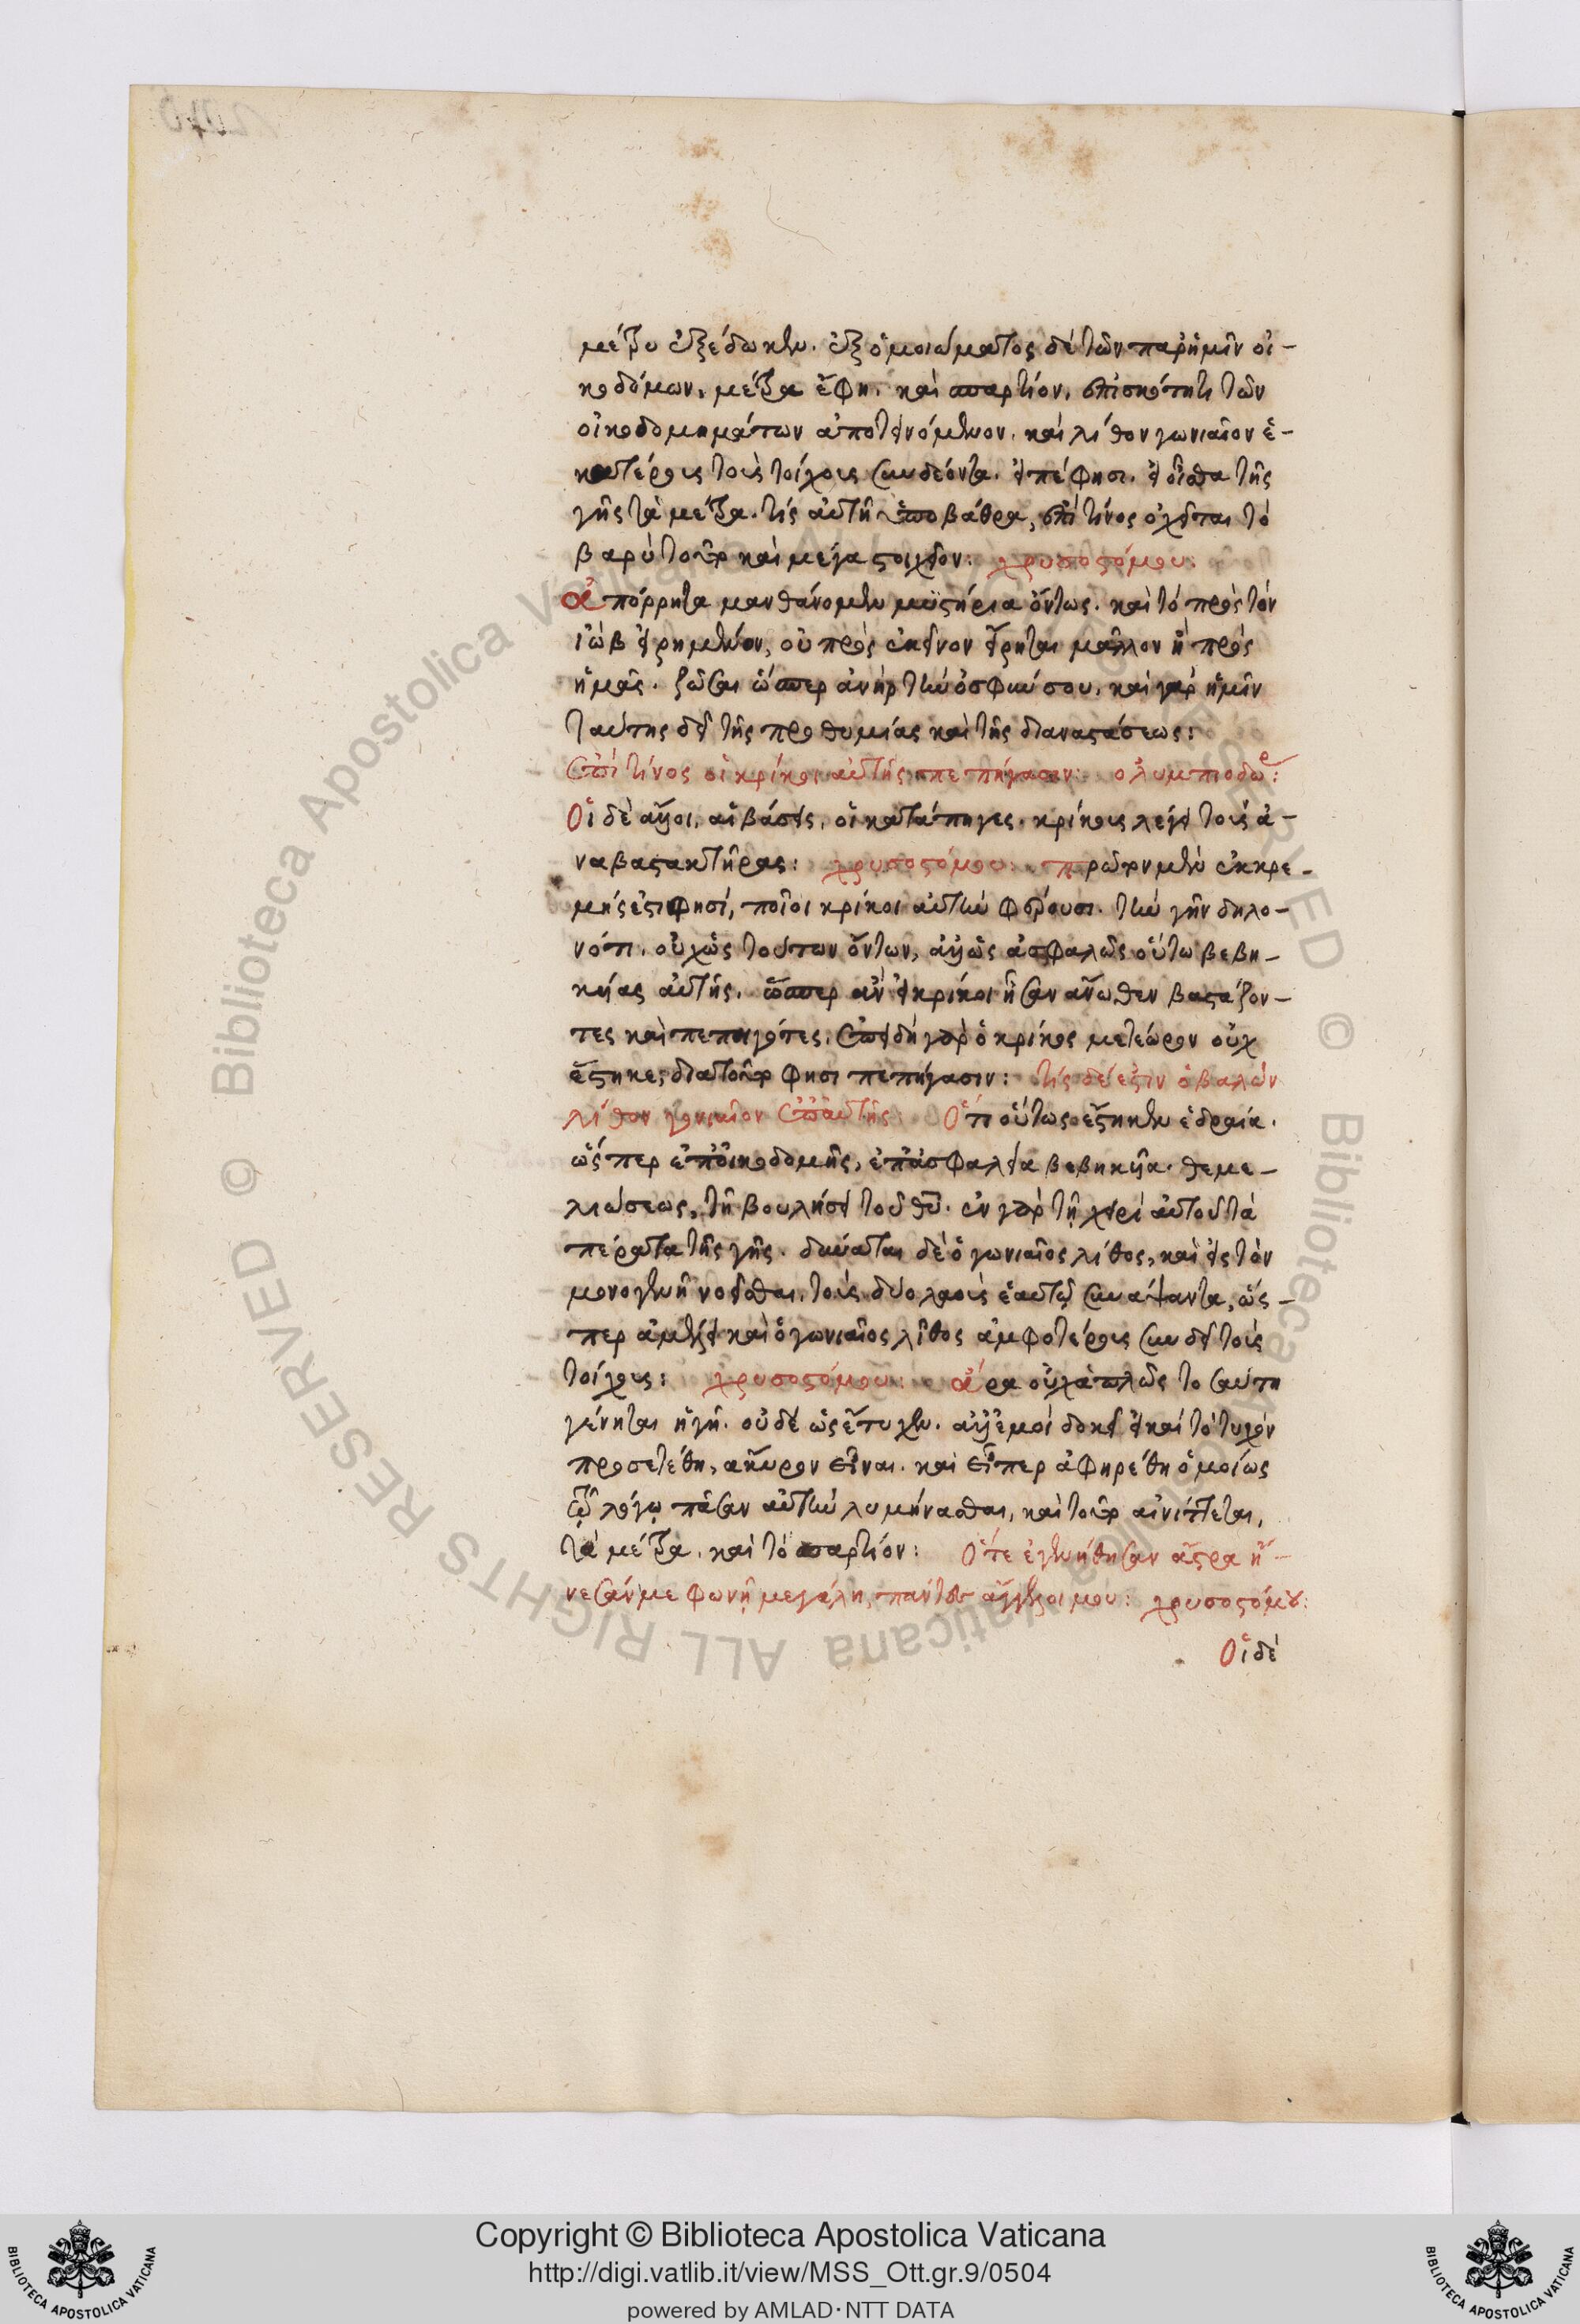 μέτρῳ ἐξέδωκεν. ἐξ ὁμοιώματος δὲ τῶν παρ' ἡμῖν οἰ-
κοδόμων, μέτρα ἔφη. καὶ σπαρτίον, ἐπισκότητι τῶν
οἰκοδομημάτων ἀποτεινόμενον. καὶ λίθον γωνιαῖον ἑ-
κατέροις τοῖς τοίχοις συνδέοντα. εἰπέ φησι. εἰ οἶσθα τῆς
γῆς τὰ μέτρα. τίς αὐτῇ ὑποβάθρα, ἐπὶ τίνος ὀχεῖται τὸ
βαρὺ τοῦτο καὶ μέγα στοιχεῖον: χρυσοστόμου:
ἀπόρρητα μανθάνομεν μυστήρια ὄντως. καὶ τὸ πρὸς τὸν
ἰὼβ εἰρημένον, οὐ πρὸς ἐκεῖνον εἴρηται μᾶλλον ἢ πρὸς
ἡμᾶς. ζῶσαι ὥσπερ ἀνὴρ τὴν ὀσφύν σου. καὶ γὰρ ἡμῖν
ταύτης δεῖ τῆς προθυμίας καὶ τῆς διαναστάσεως:
Ἐπὶ τίνος οἱ κρίκοι αὐτῆς πεπήγασιν: ὀλυμπιοδώρ:
Οἱ δὲ ἄλλοι, αἱ βάσεις, οἱ κατάπηγες. κρίκους λέγει τοὺς ἀ-
ναβαστακτῆρας: χρυσοστόμου: πρῶτον μὲν ἐκκρε-
μής ἐστι φησί, ποῖοι κρίκοι αὐτὴν φέρουσι. τὴν γῆν δηλο-
νότι. οὐχ ὡς τούτων ὄντων, ἀλλ' ὡς ἀσφαλῶς οὕτω βεβη-
κυίας αὐτῆς. ὥσπερ ἂν εἰ κρίκοι ἦσαν ἄνωθεν βαστάζον-
τες καὶ πεπηγότες. Ἐπειδὴ γὰρ ὁ κρίκος μετέωρον οὐχ
ἕστηκε, διατοῦτο φησι πεπήγασιν: τίς δέ ἐστιν ὁ βαλὼν
λίθον γωνιαῖον ἐπ' αὐτῆς: Ὅτι οὕτως ἕστηκεν ἑδραία.
ὥσπερ ἐπ' οἰκοδομῆς, ἐπ' ἀσφαλεῖα βεβηκυῖα. θεμε-
λιώσεως, τῇ βουλήσει τοῦ θυ. ἐν γὰρ τῇ χειρὶ αὐτοῦ τὰ
πέρατα τῆς γῆς. δύναται δὲ ὁ γωνιαῖος λίθος, καὶ εἰς τὸν
μονογενῆ νοεῖσθαι. τοὺς δύο λαοὺς ἑαυτῷ συνάψαντα, ὥς-
περ ἀμέλει καὶ ὁ γωνιαῖος λίθος ἀμφοτέρους συνδεῖ τοὺς
τοίχους: χρυσοστόμου: ἄρα οὐχ ἁπλῶς τοσαύτη
γένηται ἡ γῆ. οὐδὲ ὡς ἔτυχεν. ἀλλ' ἐμοὶ δοκεῖ εἰ καὶ τὸ τυχὸν
προσετέθη, ἄκυρον εἶναι. καὶ εἴπερ ἀφηρέθη ὁμοίως
τῷ λόγῳ πᾶσαν αὐτὴν λυμήνασθαι, καὶ τοῦτο αἰνίττεται,
τὰ μέτρα. καὶ τὸ σπαρτίον: Ὅτε ἐγενήθησαν ἄστρα ἤ-
νεσάν με φωνῇ μεγάλῃ πάντες ἄγγελοί μου: χρυσοστόμου:
Οἱ δὲ
Copyright © Biblioteca Apostolica Vaticana
http://digi.vatlib.it/view/MSS_Ott.gr.9/0504
powered by AMLAD·NTT DATA